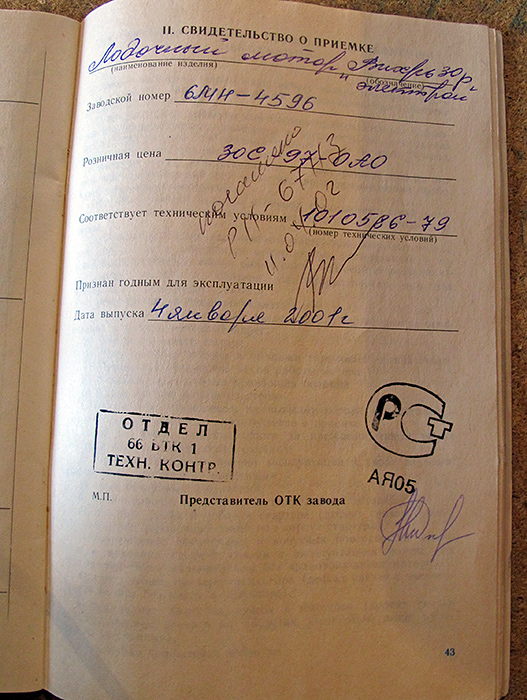 11. СВИДЕТЕЛЬСТВО О ПРИЕМКЕ
Лодочный мотор "Вихрь 30р-
(наименование изделия) (обозначение)
электрон
Заводской номер 6МН-4596
Розничная цена
погашено
Соответствует техническим условиям 1010586-79
(номер технических условий)
Признан годным для эксплуатации
Дата выпуска 4 января 2001г
ОТДЕЛ
66 БТК 1
ТЕХН. КОНТР.
РСТ
АЯ05
М.П. Представитель ОТК завода
43